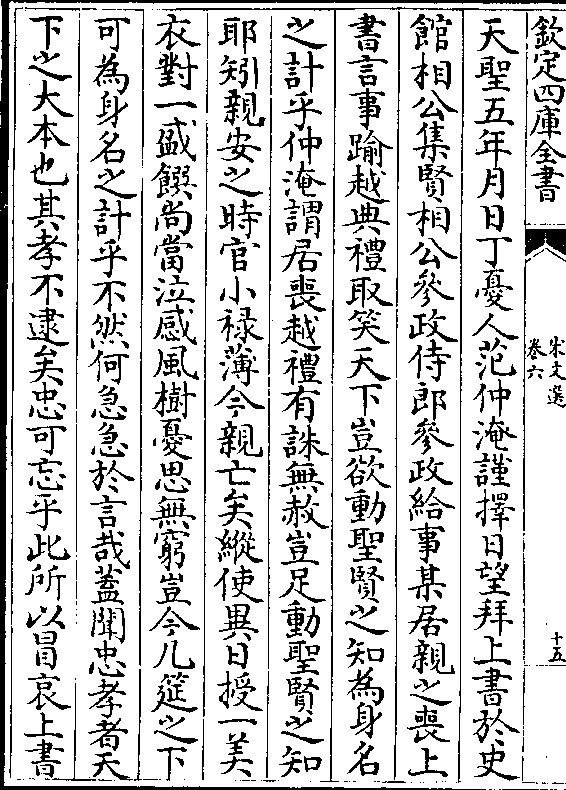 欽定四庫全書
宋文選
卷六
十五
天聖五年月日丁憂人范仲淹謹擇日望拜上書於史
館相公集賢相公參政侍郎參政給事某居親之喪上
書言事踰越典禮取笑天下豈欲動聖賢之知為身名
之計乎仲淹謂居喪越禮有誅無赦豈足動聖賢之知
耶矧親安之時官小祿薄今親亡矣縱使異日授一美
衣對一盛饌尚當泣感風樹憂思無窮豈今几筵之下
可為身名之計乎不然何急急於言哉蓋聞忠孝者天
下之大本也其孝不逮矣忠可忘乎此所以冒哀上書